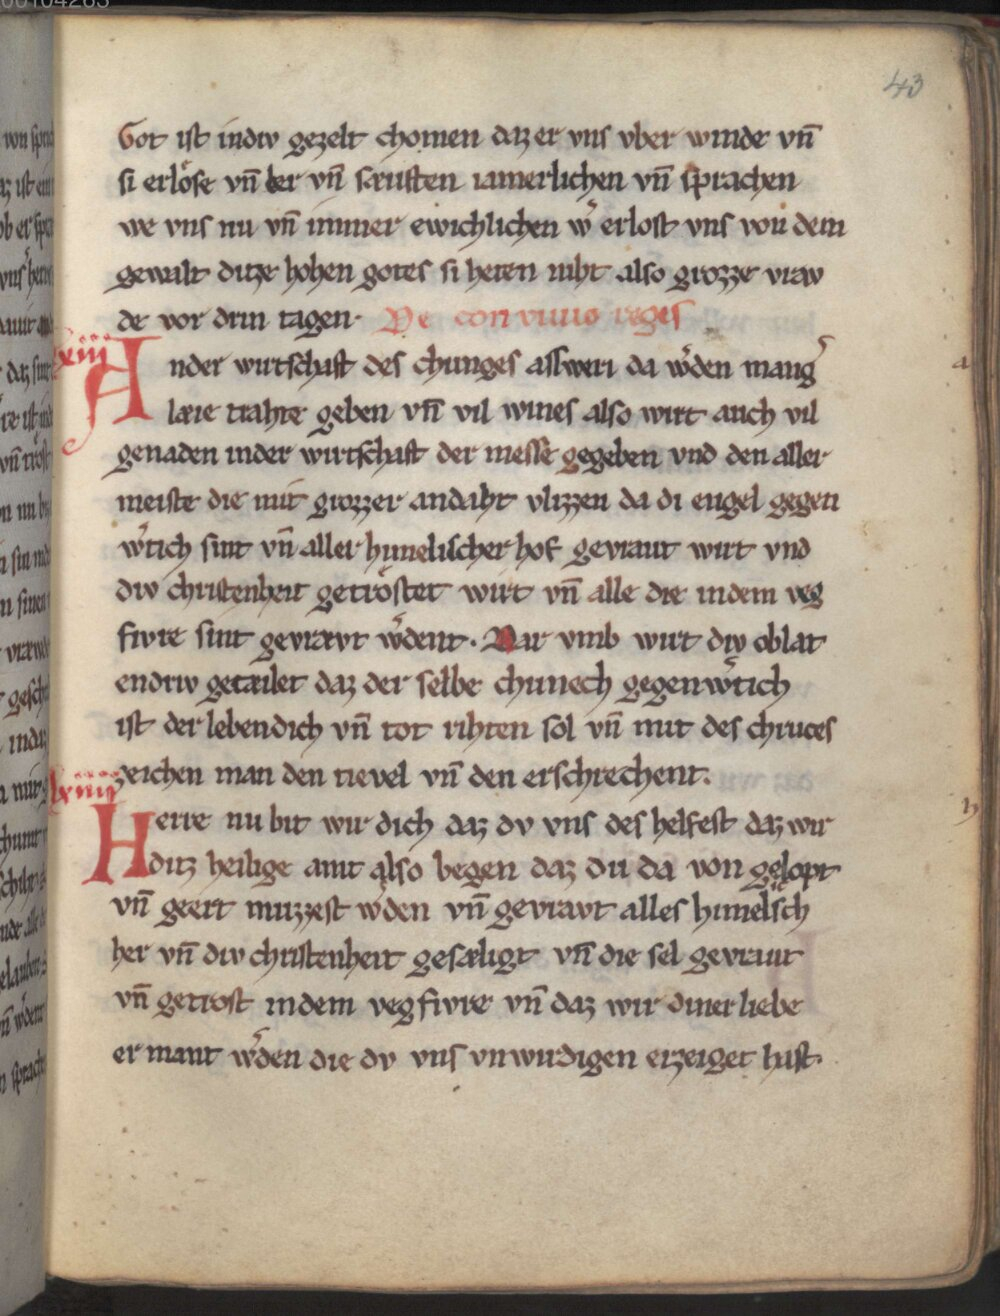 43
Got ist indiv gezelt chomen daz er vns vber winde vn̄
si erlöse vn̄ her vn̄ sæuften iamerlichen vn̄ sprachen
we vns nu vn̄ immer ewichlichen w̾ erlost vns von dem
gewalt ditze hohen gotes si heten niht also grozze vraw
de vor drin tagen· De conviuio reges
lxiii
Ander wirtschaft des chunges assweri da w̾den mang̾
læie trahte geben vn̄ vil wines also wirt auch vil
genaden inder wirtschaft der messe gegeben vnd den aller
meiste die mit grozzer andaht vlizzen da di engel gegen
w̾tich sint vn̄ aller himelischer hof gevraut wirt vnd
div christenheit getröstet wirt vn̄ alle die indem veg
fivre sint gevræut w̾dent· Dar vmb wirt div oblat
endriv getæilet daz der selbe chunech gegenw̾tich
ist der lebendich vn̄ tot rihten sol vn̄ mit des chruces
zeichen man den tievel vn̄ den erschrechent.
lxiiii
Herre nu bit wir dich daz dv vns des helfest daz wir
ditz heilige amt also begen daz du da von gelopt
vn̄ geert muzzest w̾den vn̄ gevravt alles himelsch
her vn̄ div christenheit gesæligt vn̄ die sel gevraut
vn̄ getrost indem vegfivre vn̄ daz wir diner liebe
er mant w̾den die dv vns vnwirdigen erzeiget hast·